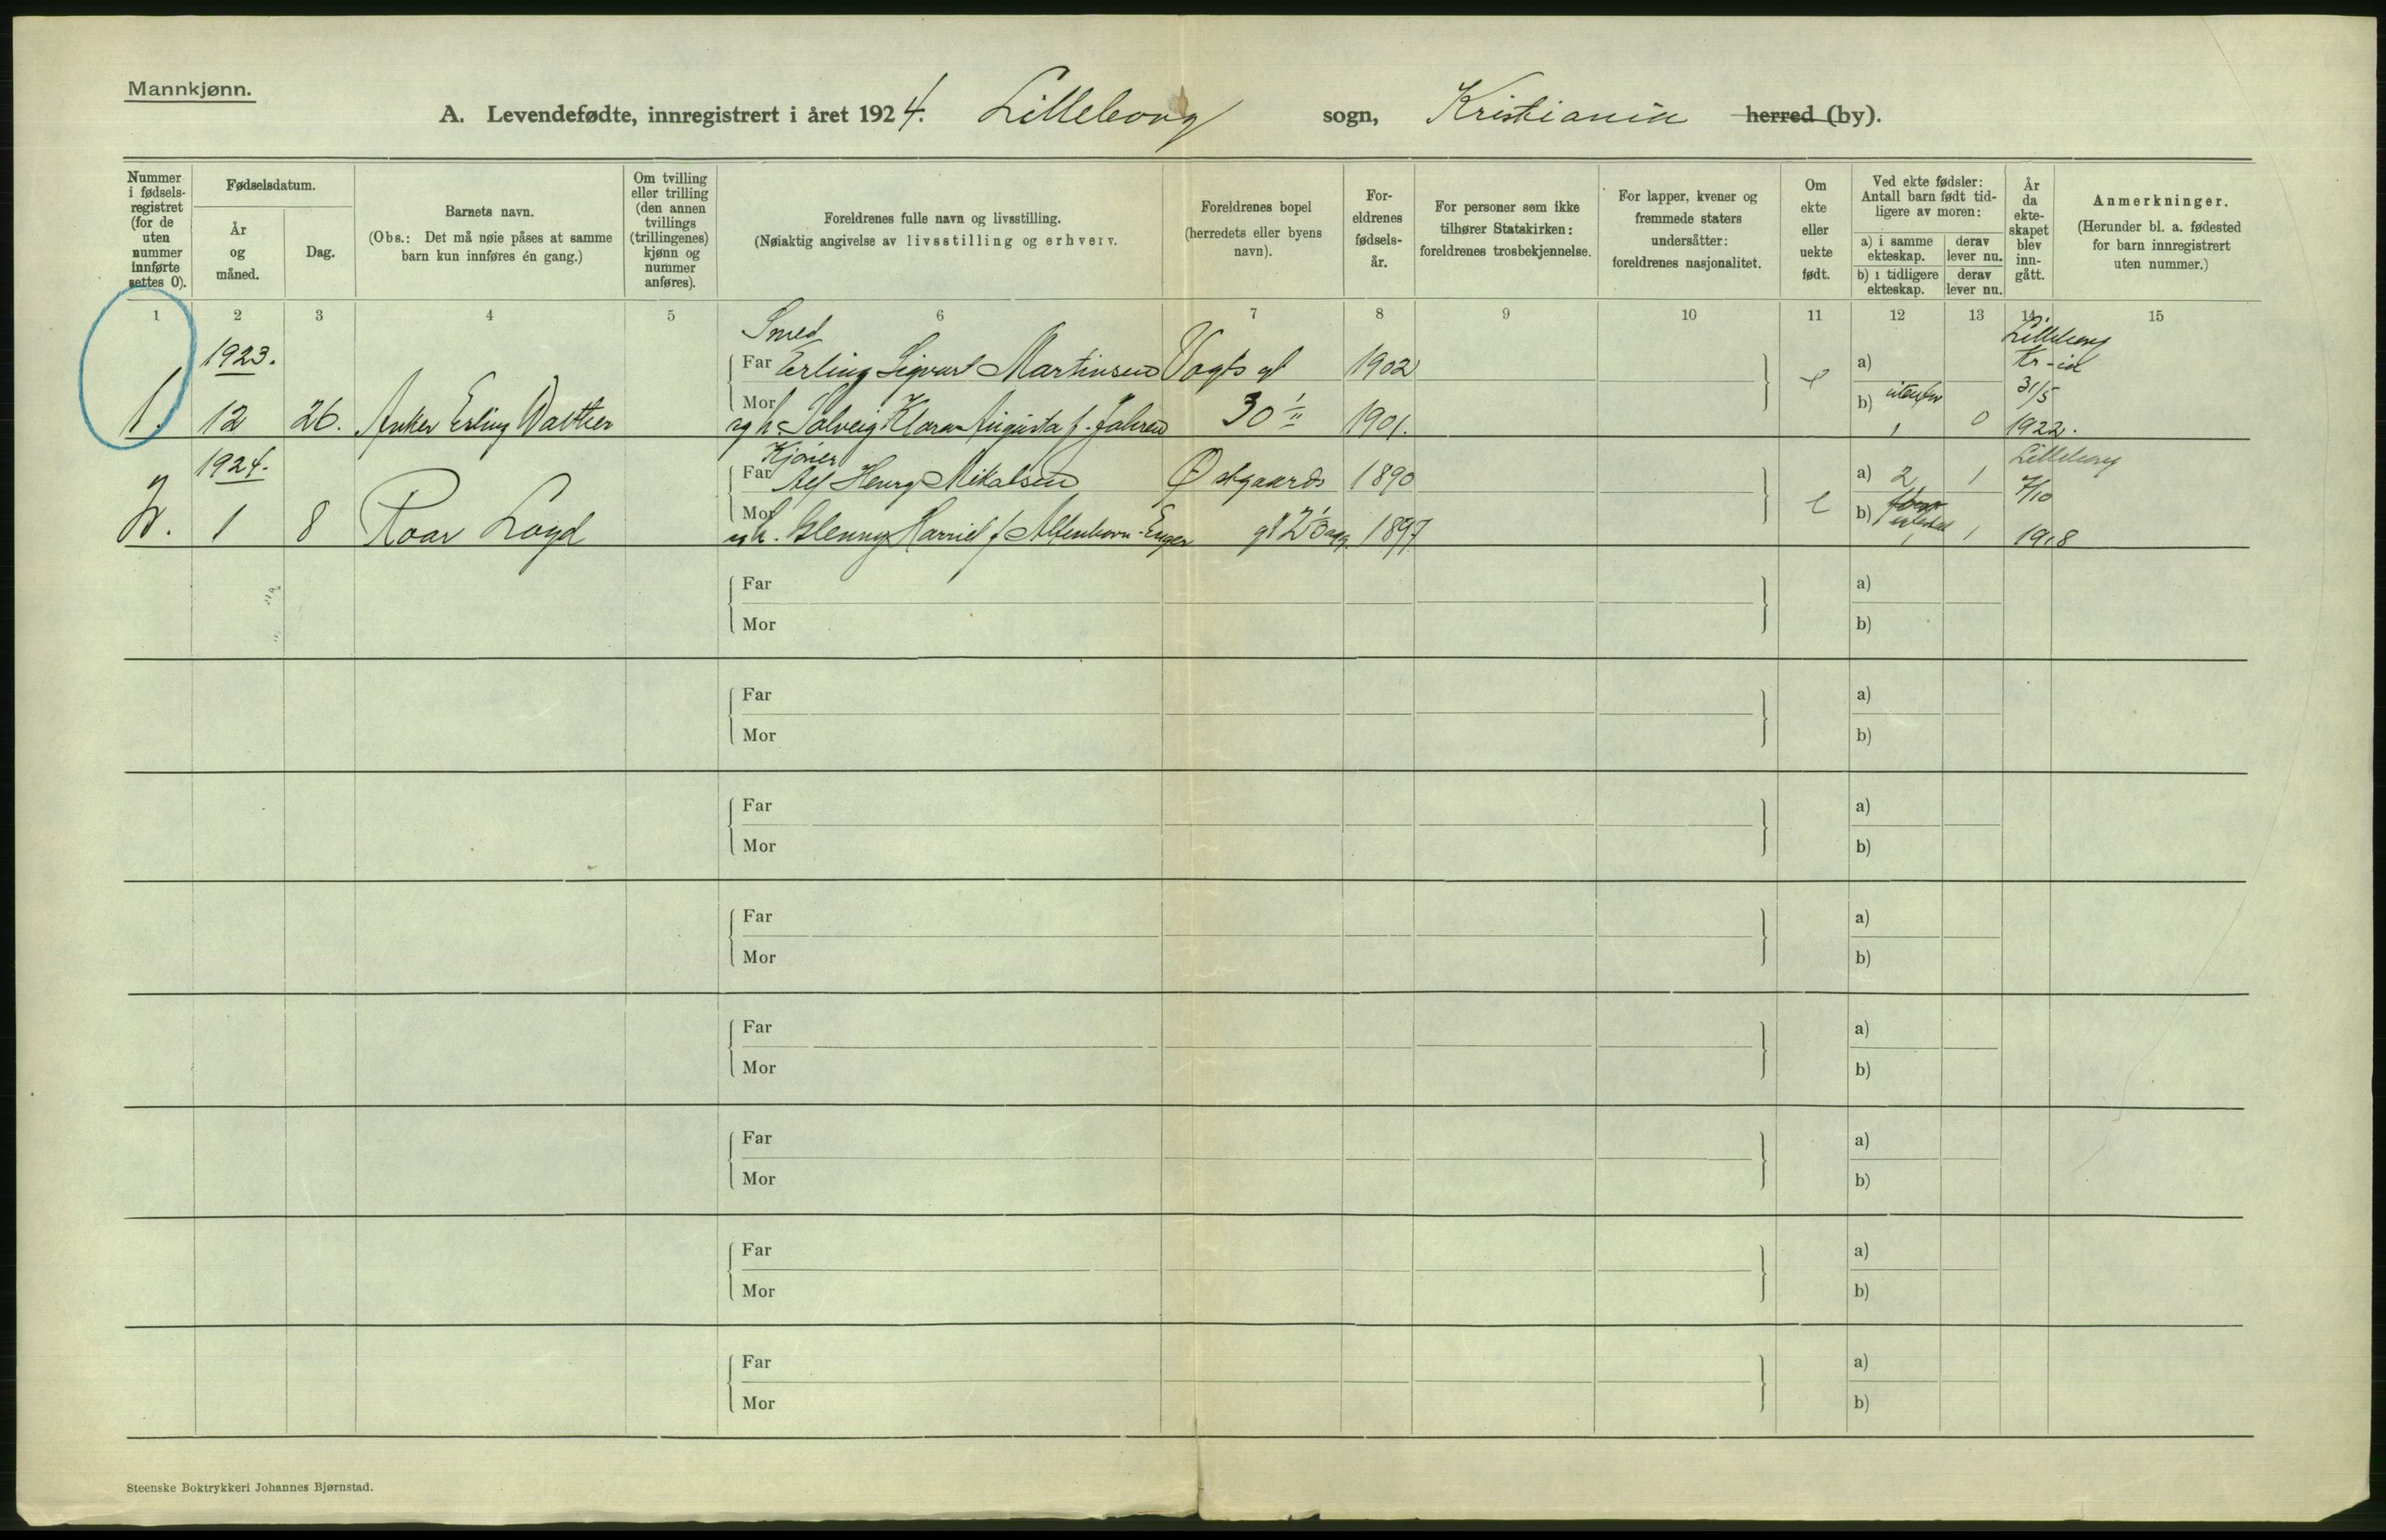 Mannkjønn.
A. Levendefødte, innregistrert i året 1924. Lilleborg sogn, Kristiania herred (by).
Nummer i fødsels-registret (for de uten nummer innførte settes 0).
Fødselsdatum.
År og måned.
Dag.
Barnets navn.
(Obs.: Det må nøie påses at samme barn kun innføres én gang.)
Om tvilling eller trilling (den annen tvillings (trillingenes) kjønn og nummer anføres).
Foreldrenes fulle navn og livsstilling.
(Nøiaktig angivelse av livsstilling og erhverv.
Foreldrenes bopel (herredets eller byens navn).
For-eldrenes fødsels-år.
For personer som ikke tilhører Statskirken: foreldrenes trosbekjennelse.
For lapper, kvener og fremmede staters undersåtter: foreldrenes nasjonalitet.
Om ekte eller uekte født.
Ved ekte fødsler: Antall barn født tid-ligere av moren:
a) i samme ekteskap.
derav lever nu.
b) i tidligere ekteskap.
derav lever nu.
År da ekte-skapet blev inn-gått.
Anmerkninger.
(Herunder bl. a. fødested for barn innregistrert uten nummer.)
1 2 3 4 5 6 7 8 9 10 11 12 13 14 15
Smed Lilleborg
1923. Far Erling Sigvart Martinsen Vogts gt 1902 a) Kr-ia
1. 12 26. Anker Erling Walther Mor og h. Solveig Klara Augusta f. Jahren 30 II 1901. e b) 1 0 31/5 1922.
Kjører Lilleborg
1924. Far Alf Henry Mikalsen Østgaards 1890 a) 2 1 7/10
2. 1 8 Roar Loyd Mor og h. Glenny Harriet f. gt 1897 e b) 1 1918
Far a)
Mor b)
Far a)
Mor b)
Far a)
Mor b)
Far a)
Mor b)
Far a)
Mor b)
Far a)
Mor b)
Far a)
Mor b)
Far a)
Mor b)
Steenske Boktrykkeri Johannes Bjørnstad.